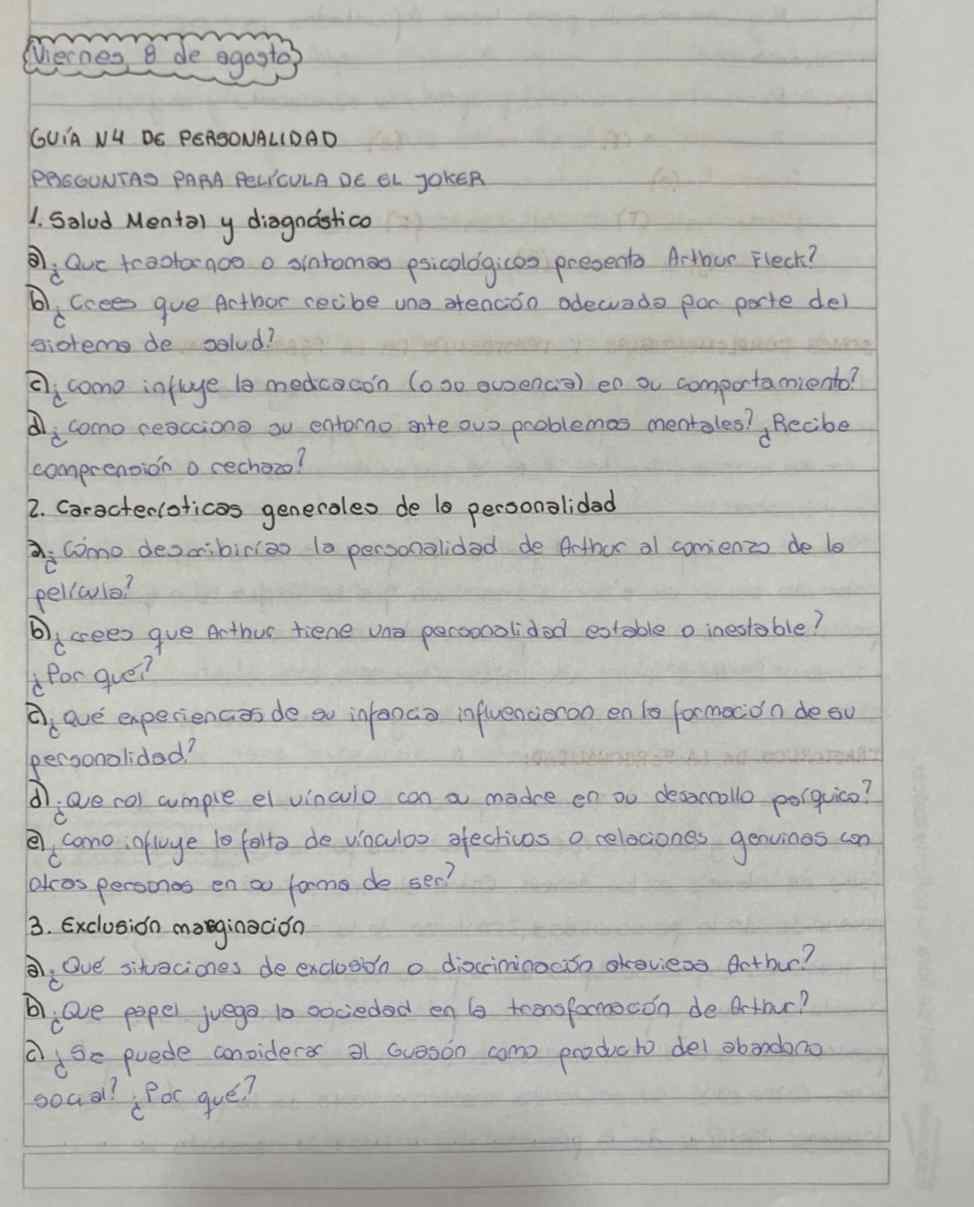 Viernes 8 de agosto
GUÍA N4 DE PERSONALIDAD
PREGUNTAS PARA PELÍCULA DE EL JOKER
1. Salud Mental y diagnóstico
a) ¿Que trastornos o síntomas psicológicos presenta Arthur Fleck?
b) ¿Crees que Arthur recibe una atención adecuada por parte del
sistema de salud?
c) ¿como influye la medicación (o su ausencia) en su comportamiento?
d) ¿como reacciona su entorno ante sus problemas mentales? ¿Recibe
comprensión o rechazo?
2. Características generales de la personalidad
a. ¿Cómo describirías la personalidad de Arthur al comienzo de la
película?
b) ¿crees que Arthur tiene una personalidad estable o inestable?
¿Por qué?
c) ¿Qué experiencias de su infancia influenciaron en la formación de su
personalidad?
d) ¿Que rol cumple el vínculo con su madre en su desarrollo psíquico?
e) ¿como influye la falta de vínculos afectivos o relaciones genuinas con
otras personas en su forma de ser?
3. Exclusión marginación
a) ¿Qué situaciones de exclusión o discriminación atraviesa Arthur?
b) ¿Que papel juega la sociedad en la transformación de Arthur?
c) ¿Se puede considerar al Guasón como producto del abandono
social? ¿Por qué?